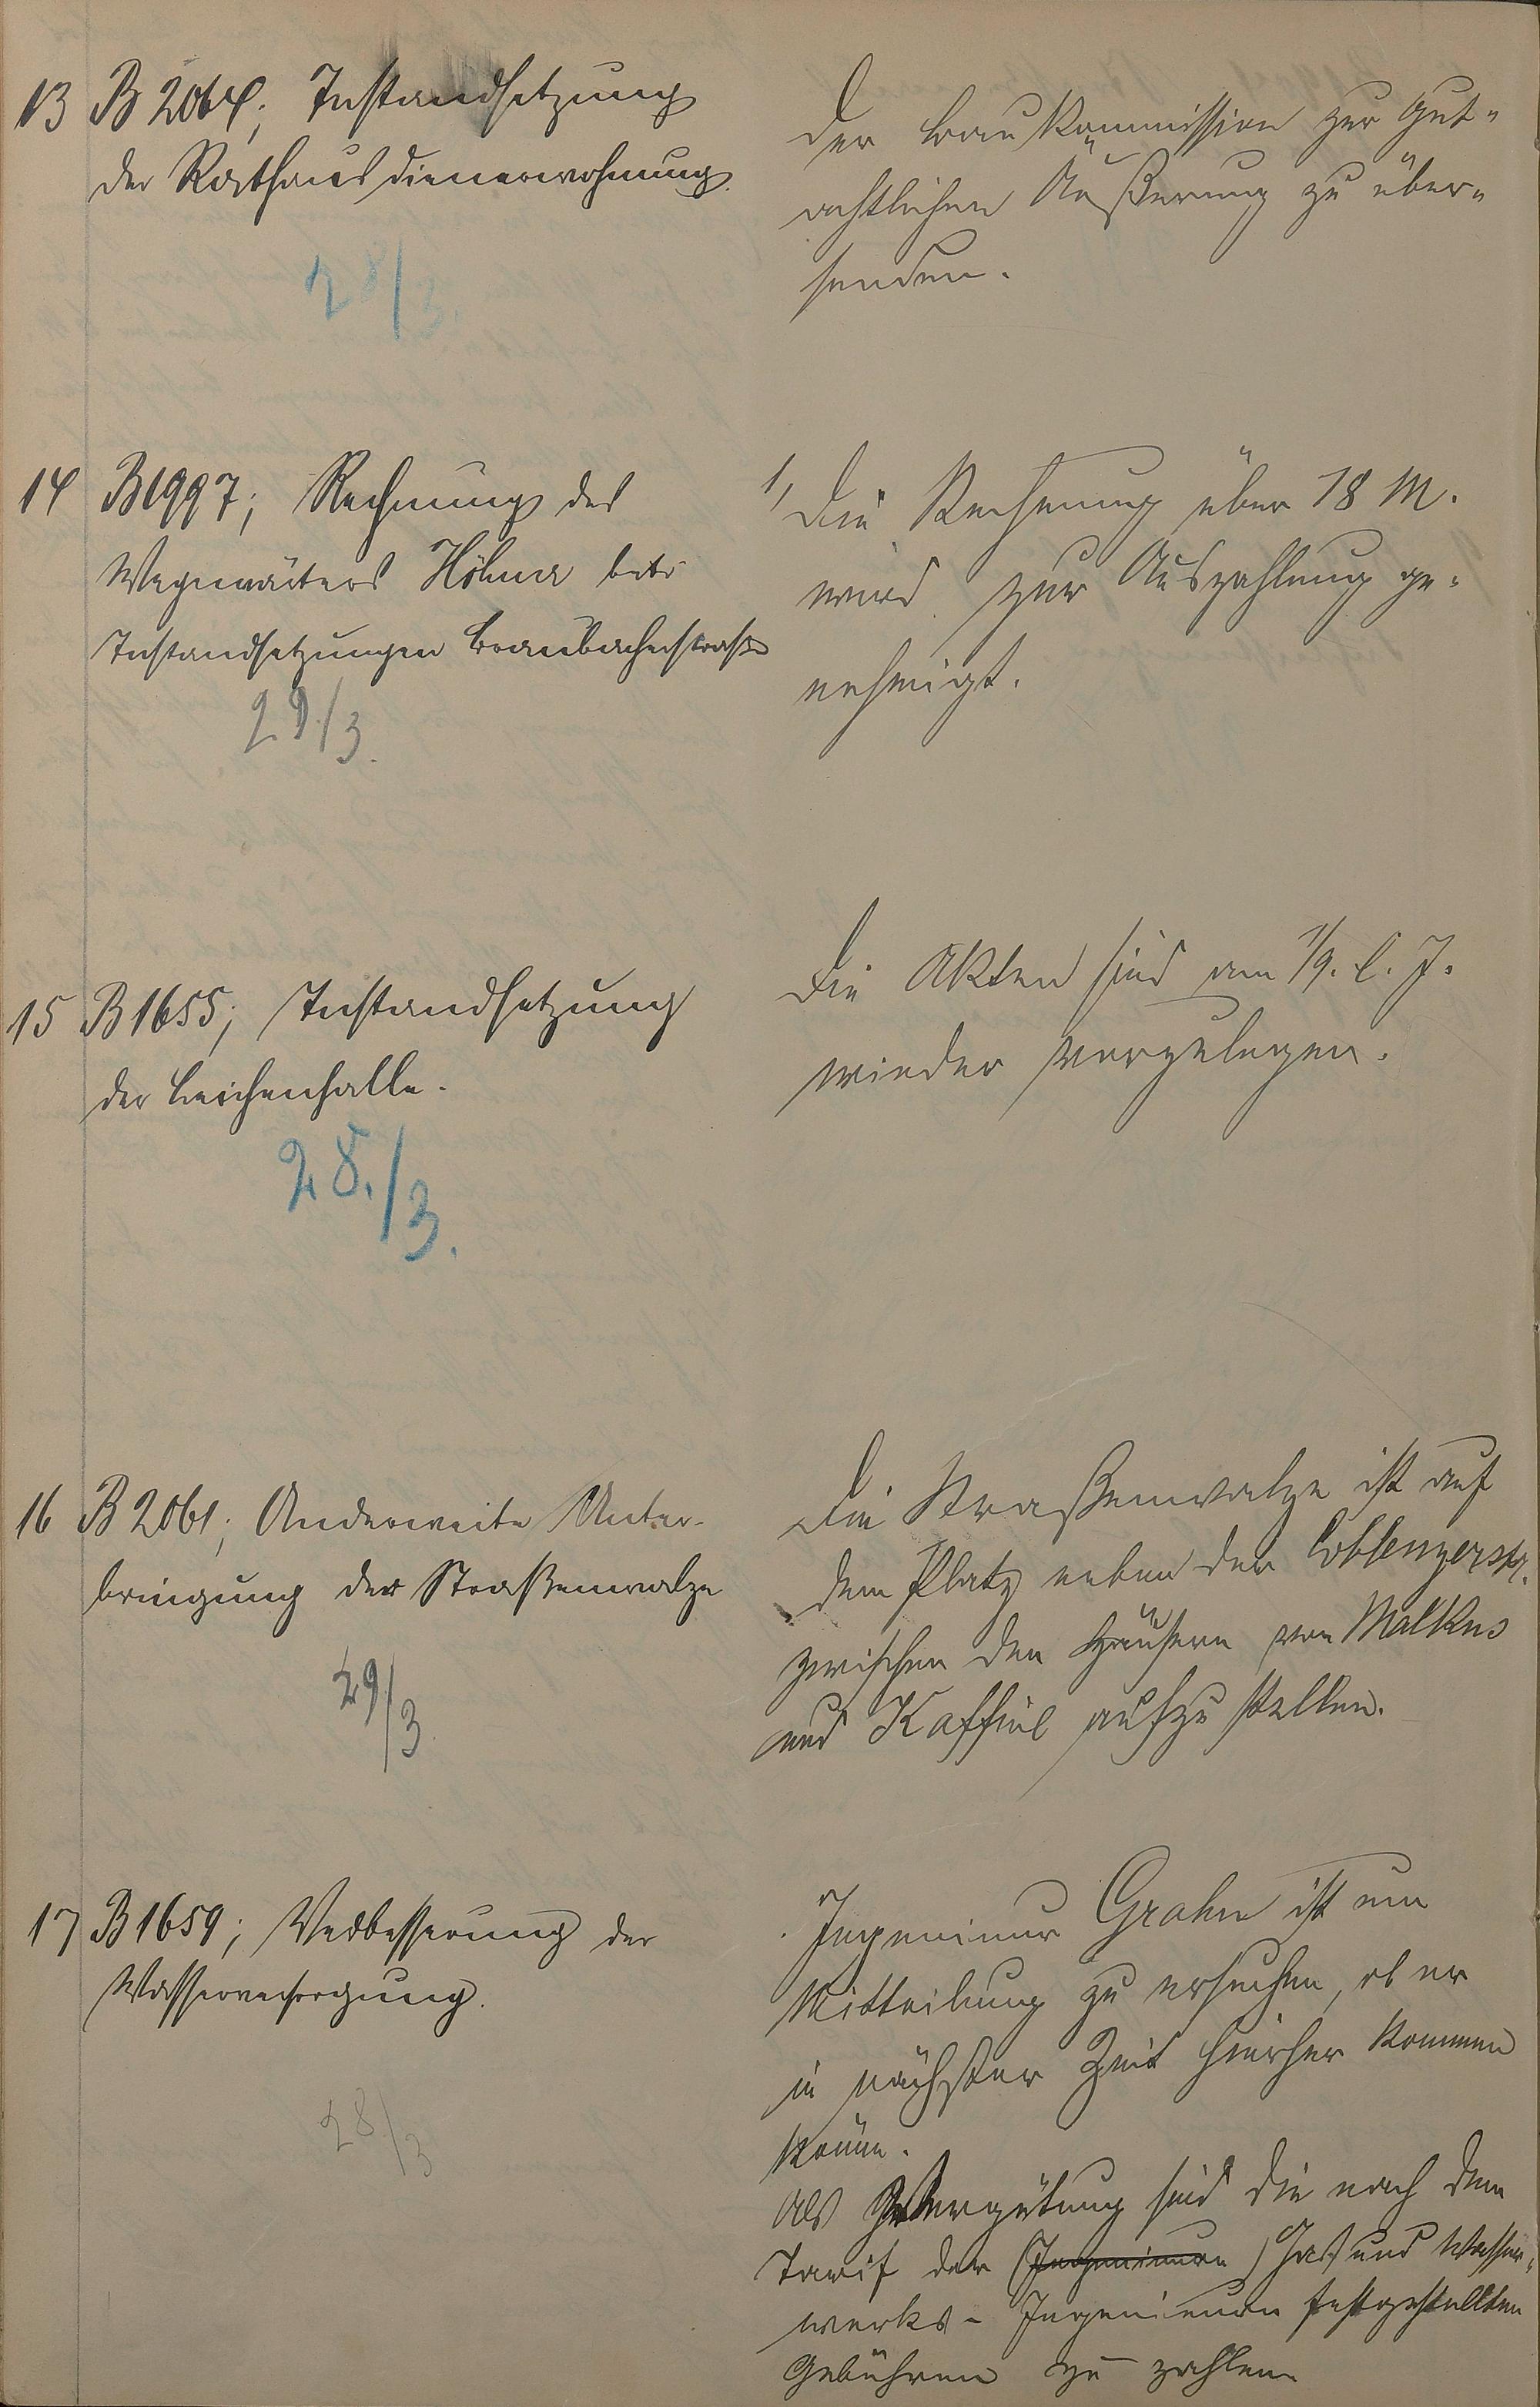 13 B 2064; Instandsetzung
der Rathausdienerwohnung.
28/3.
Der Baukommission zur gut-
achtlichen Äußerung zu über-
senden.
14 B 1997; Rechnung des
Wegewärters Höhner betr.
Instandsetzungen Braubacherstraße
29/3.
1, Die Rechnung über 18 M.
wird zur Auszahlung ge-
nehmigt.
15 B 1655; Instandsetzung
der Leichenhalle.
28./3.
Die Akten sind am 1/9. l. J.
wieder vorzulegen.
16 B 2061; Anderweite Unter-
bringung der Straßenwalze
29/3
Die Straßenwalze ist auf
dem Platz neben der Coblenzerstr.
zwischen den Häusern von
und aufzustellen.
17 B 1659; Verbesserung der
Wasserversorgung.
28/3
Ingenieur Grahn ist um
Mitteilung zu ersuchen, ob er
in nächster Zeit hierher kommen
könne.
Als Vergütung sind die nach dem
Tarif der (Ingenieure) Gas und Wasser-
werks-Ingenieure festgestellten
Gebühren zu zahlen.